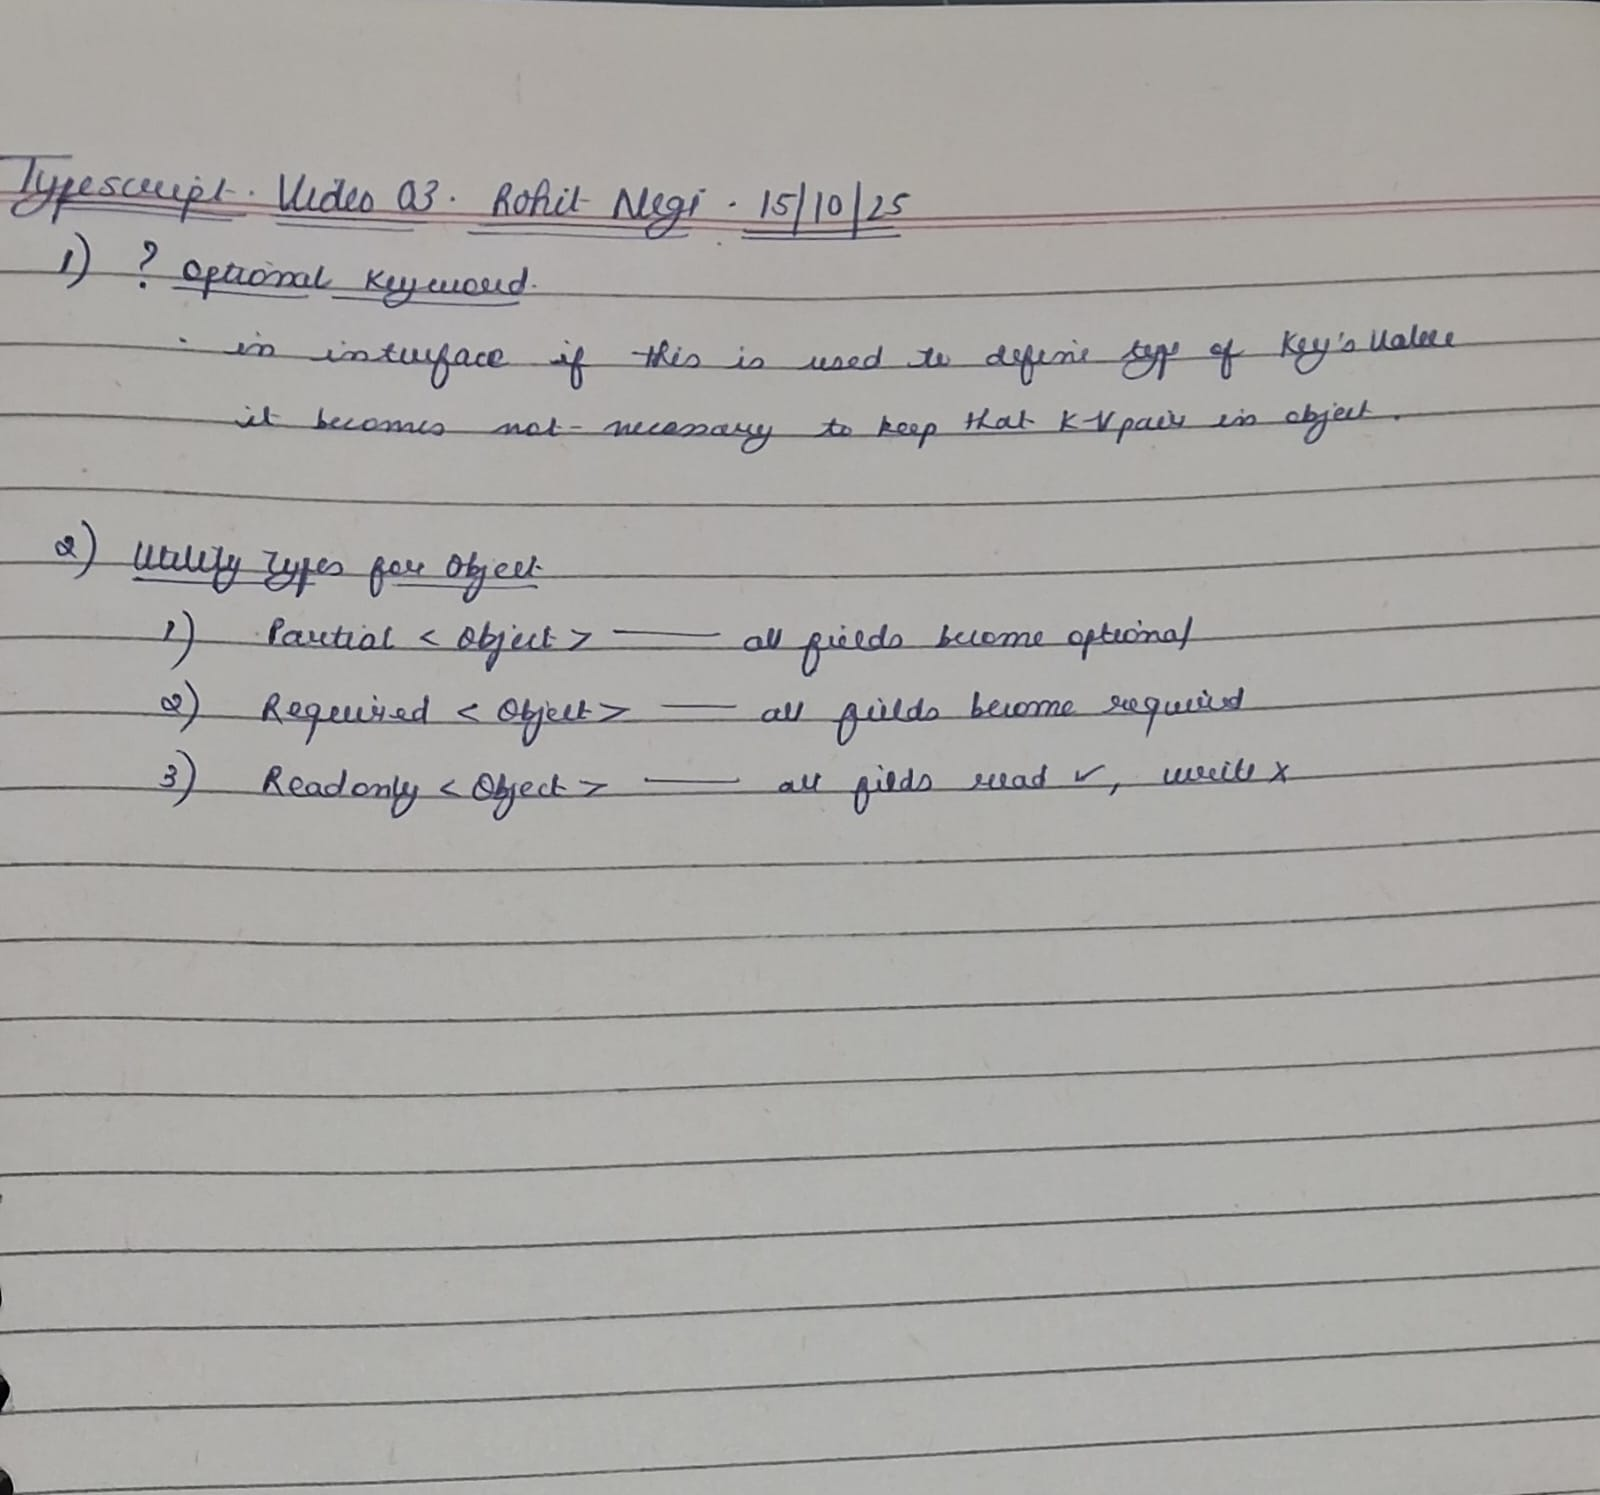 Typescript. Video 03. Rohit Negi. 15/10/25
1) ? optional keyword.
· in interface if this is used to define type of key's value
it becomes not-necessary to keep that K-V pair in object.
2) Utility Types for Object
1) Partial < Object > — all fields become optional
2) Required < Object > — all fields become required
3) Readonly < Object > — all fields read ✓, write x